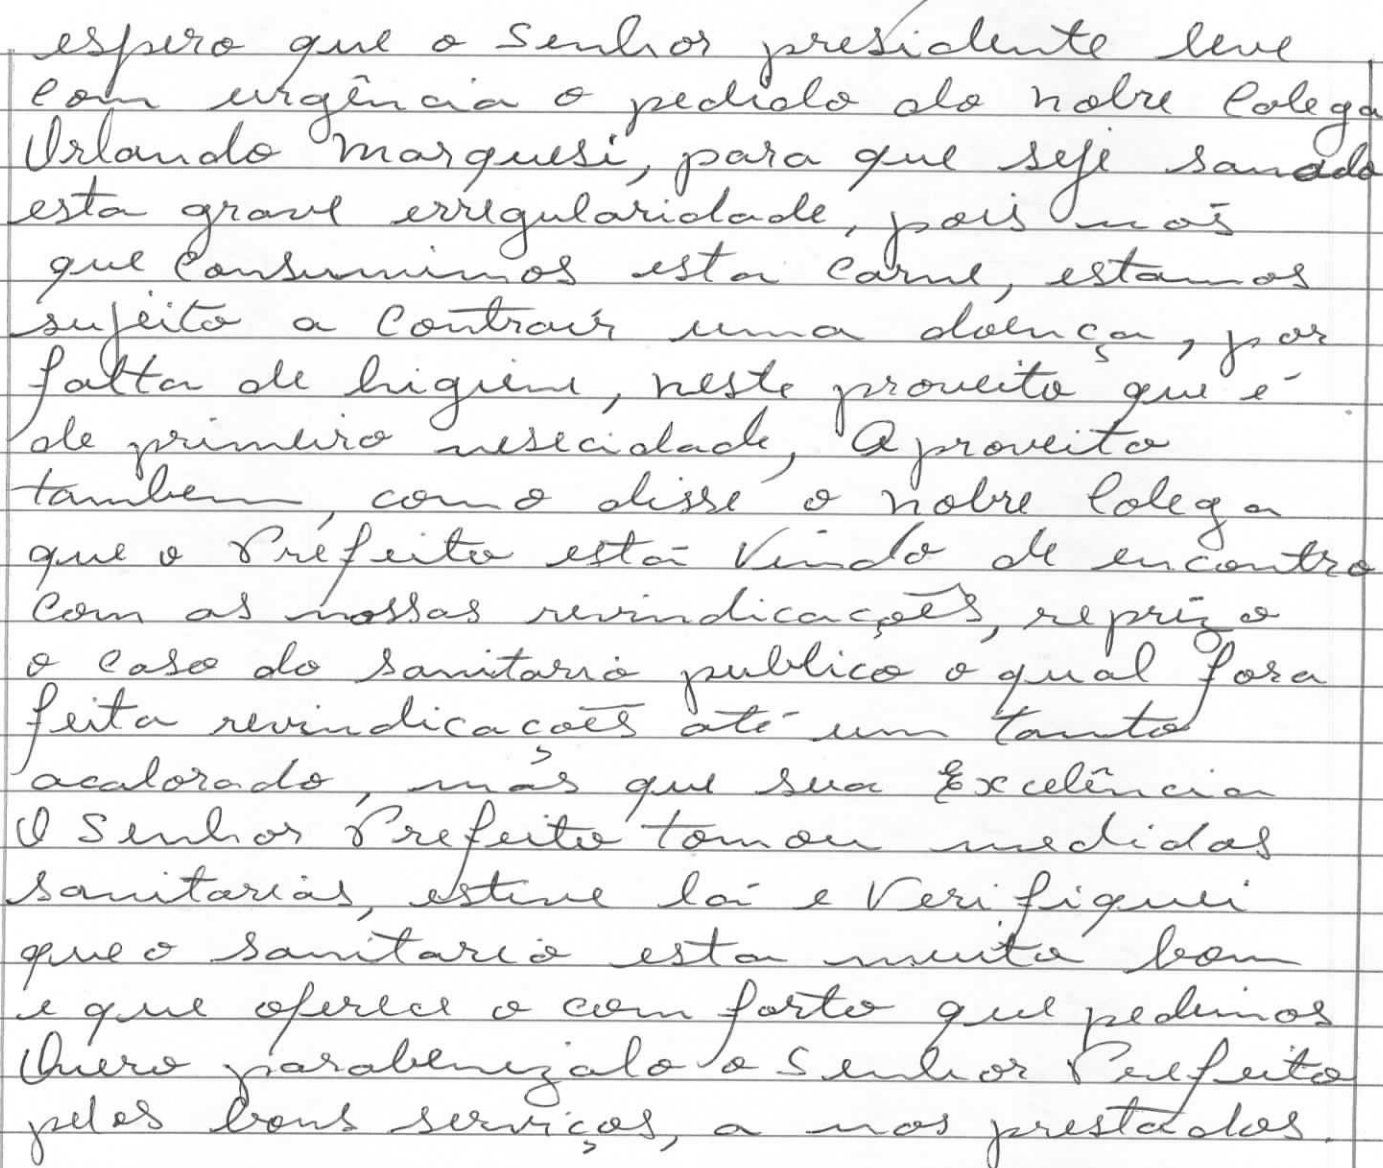 espero que o Senhor presidente leve
com urgência o pedido do nobre Colega
Orlando Marquesi, para que seje sanado
esta grave erregularidade, pois nós
que Consumimos esta Carne, estamos
sujeito a Contrair uma doença, por
falta de higiene, neste proveito que é
de primeiro nesecidade, Aproveito
tambem, como disse o nobre Colega
que o Prefeito está Vindo de encontro
Com as nossas revindicações, reprizo
o caso do sanitario publico o qual fora
feita revindicações até um tanto
acalorado, mas que sua Excelência
O Senhor Prefeito tomou medidas
sanitarias, estive lá e Verifiquei
que o sanitario esta muito bom
e que oferece o comforto que pedimos
Quero parabenizalo o Senhor Prefeito
pelos bons serviços, a nos prestados.